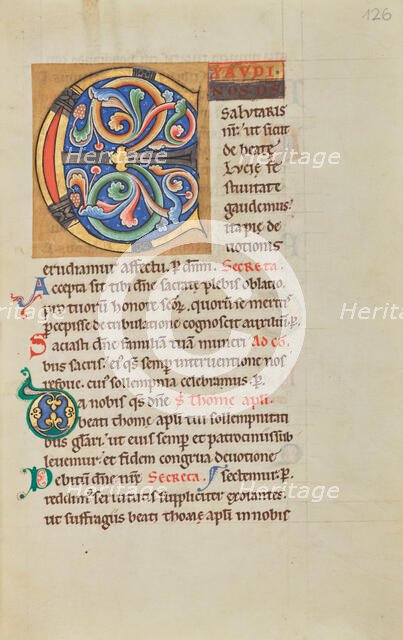 126
E XAVDI
NOS DS
Salvtaris
nr̄: ut sicut
de beate
Lucie fe
stiuitate
gaudemus:
ita pie de
uotionis
erudiamur affectu. P. dn̄m. Secreta.
Accepta sit tibi dn̄e sacrate plebis oblatio.
pro tuorum honore scōꝝ. quorum se meritis
percepisse de tribulatione cognoscit auxilium. P.
Saciasti dn̄e familiam tuam muneri Ad cō.
bus sacris: ei' qs semp interuentione nos
refoue. cuius sollempnia celebramus. P.
Da nobis qs dn̄e S Thome apli.
beati thome apli tui sollempnitati
bus glari: ut eius semper et patrocinijs sub
leuemur: et fidem congrua deuotione
Debitum dn̄e nr̄e Secreta. sectemur. P.
reddimus seruitutis suppliciter exorantes:
ut suffragijs beati thome apli in nobis
Heritage
Heritage
Heritage
Heritage
Heritage
Heritage
Heritage